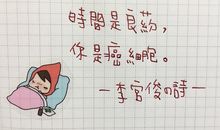 時間是良药,
你是癌細胞。
—李宮俊の詩—